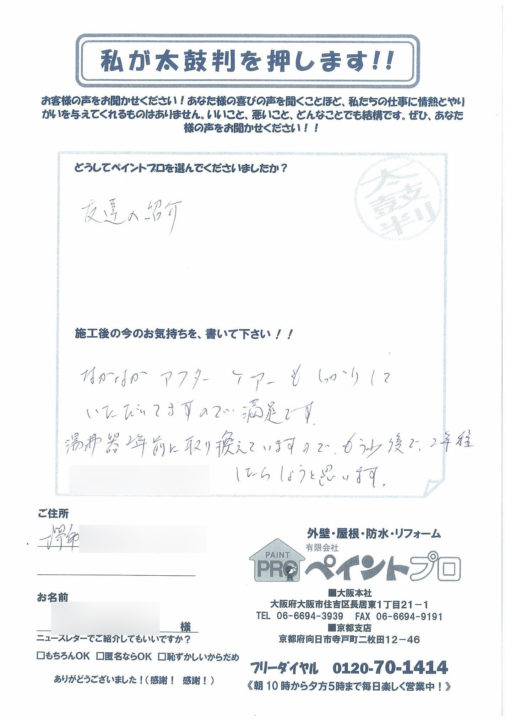 私が太鼓判を押します!!
お客様の声をお聞かせください!あなた様の喜びの声を聞くことほど、私たちの仕事に情熱とやり
がいを与えてくれるものはありません。いいこと、悪いこと、どんなことでも結構です。ぜひ、あなた
様の声をお聞かせください!!
どうしてペイントプロを選んでくださいましたか?
太鼓判
友達の紹介
施工後の今のお気持ちを、書いて下さい!!
なかなか アフター ケアーも しっかりして
いただいてますので 満足です。
湯沸器2年前に取り換えていますので、もう少後で、2年程
したらしようと思います。
ご住所
堺市
お名前
様
ニュースレターでご紹介してもいいですか?
□もちろんOK □匿名ならOK □恥ずかしいからだめ
ありがとうございました!(感謝! 感謝!)
外壁・屋根・防水・リフォーム
PAINT
PRO
有限会社
ペイントプロ
■大阪本社
大阪府大阪市住吉区長居東1丁目21-1
TEL 06-6694-3939 FAX 06-6694-9191
■京都支店
京都府向日市寺戸町二枚田12-46
フリーダイヤル 0120-70-1414
《朝10時から夕方5時まで毎日楽しく営業中!》